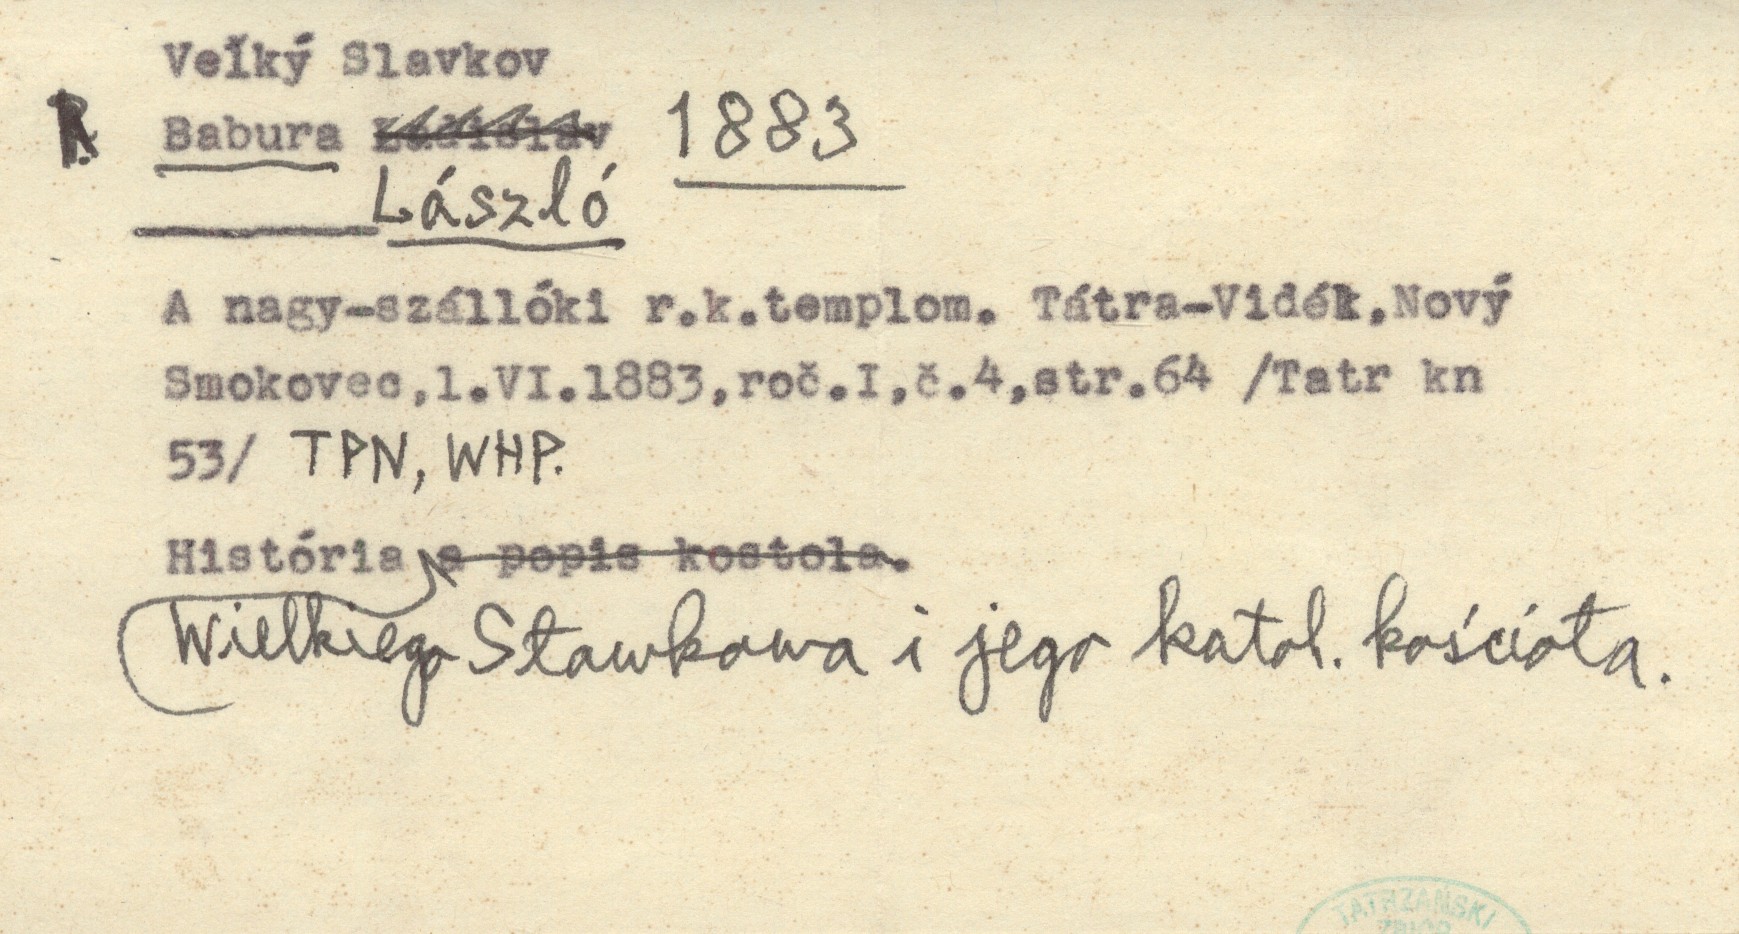 Veľký Slavkov
R. Babura Ladislav 1883
László
A nagy-szállóki r.k.templom. Tátra-Vidék,Nový
Smokovec,1.VI.1883,roč.I,č.4,str.64 /Tatr kn
53/ TPN, WHP.
História a popis kostola.
Wielkiego Sławkowa i jego katol. kościoła.
TATRZAŃSKI
ZBIÓR